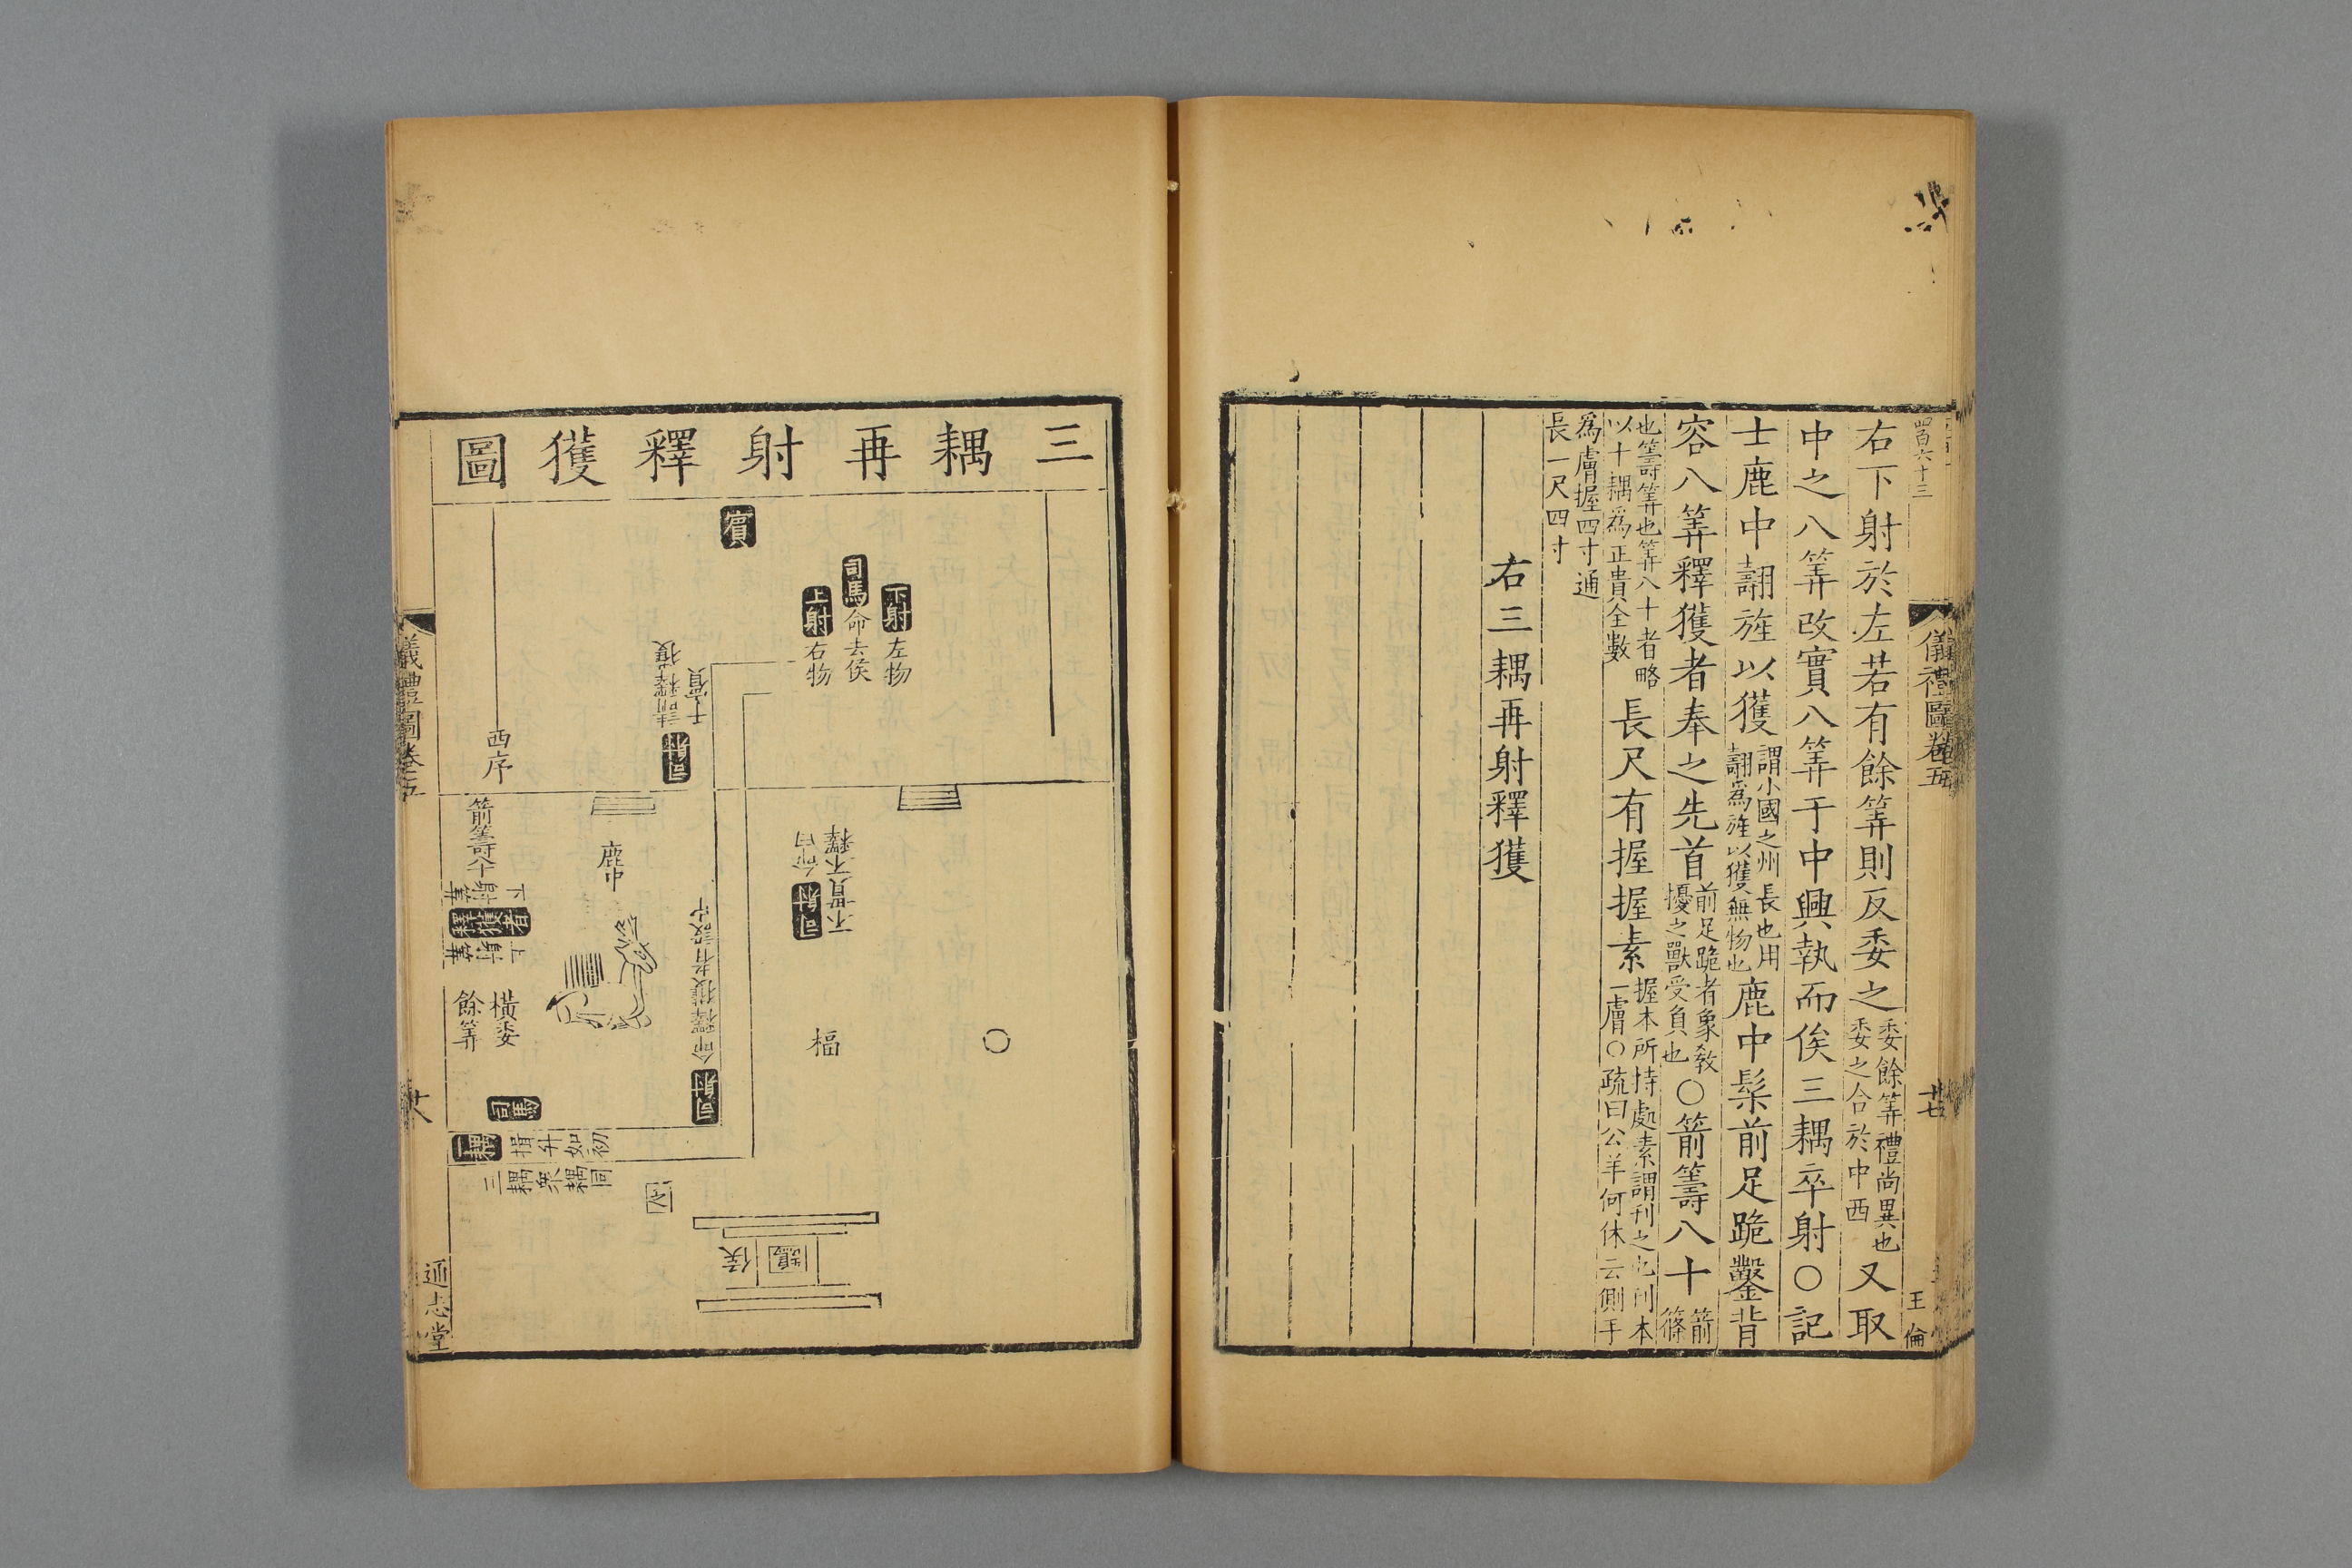 四百六十三
儀禮圖卷五
廿七
王倫
右下射於左若有餘筭則反委之委餘筭禮尚異也委之合於中西又取
中之八筭改實八筭于中興執而俟三耦卒射〇記
士鹿中翿旌以獲謂小國之州長也用翿為旌以獲無物也鹿中髹前足跪鑿背
容八筭釋獲者奉之先首前足跪者象教擾之獸受負也〇箭籌八十箭篠
也籌筭也筭八十者略以十耦爲正貴全數長尺有握握素握本所恃處素謂刊之也刊本一膚〇疏曰公羊何休云側手
爲膚握四寸通長一尺四寸
右三耦再射釋獲
三耦再射釋獲圖
賓
下射左物
司馬命去侯
上射右物
司射請釋獲于賓
西序
司射命曰不貫不釋
鹿中
箭籌八十
下射筭
釋獲者
上射筭
橫委餘筭
司射命釋獲者設中
楅
司馬
一耦揖升如初
三耦眾耦同
乏
鵠
侯
儀禮圖卷五
廿八
通志堂